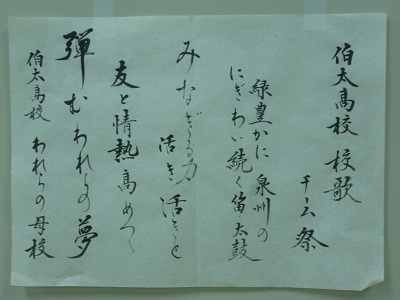 伯太高校 校歌
千玄 祭
緑豊かに 泉州の
にぎわい続く笛太鼓
みなぎる力
活き活きと
友と情熱高めつゝ
弾むわれらの夢
伯太高校 われらの母校